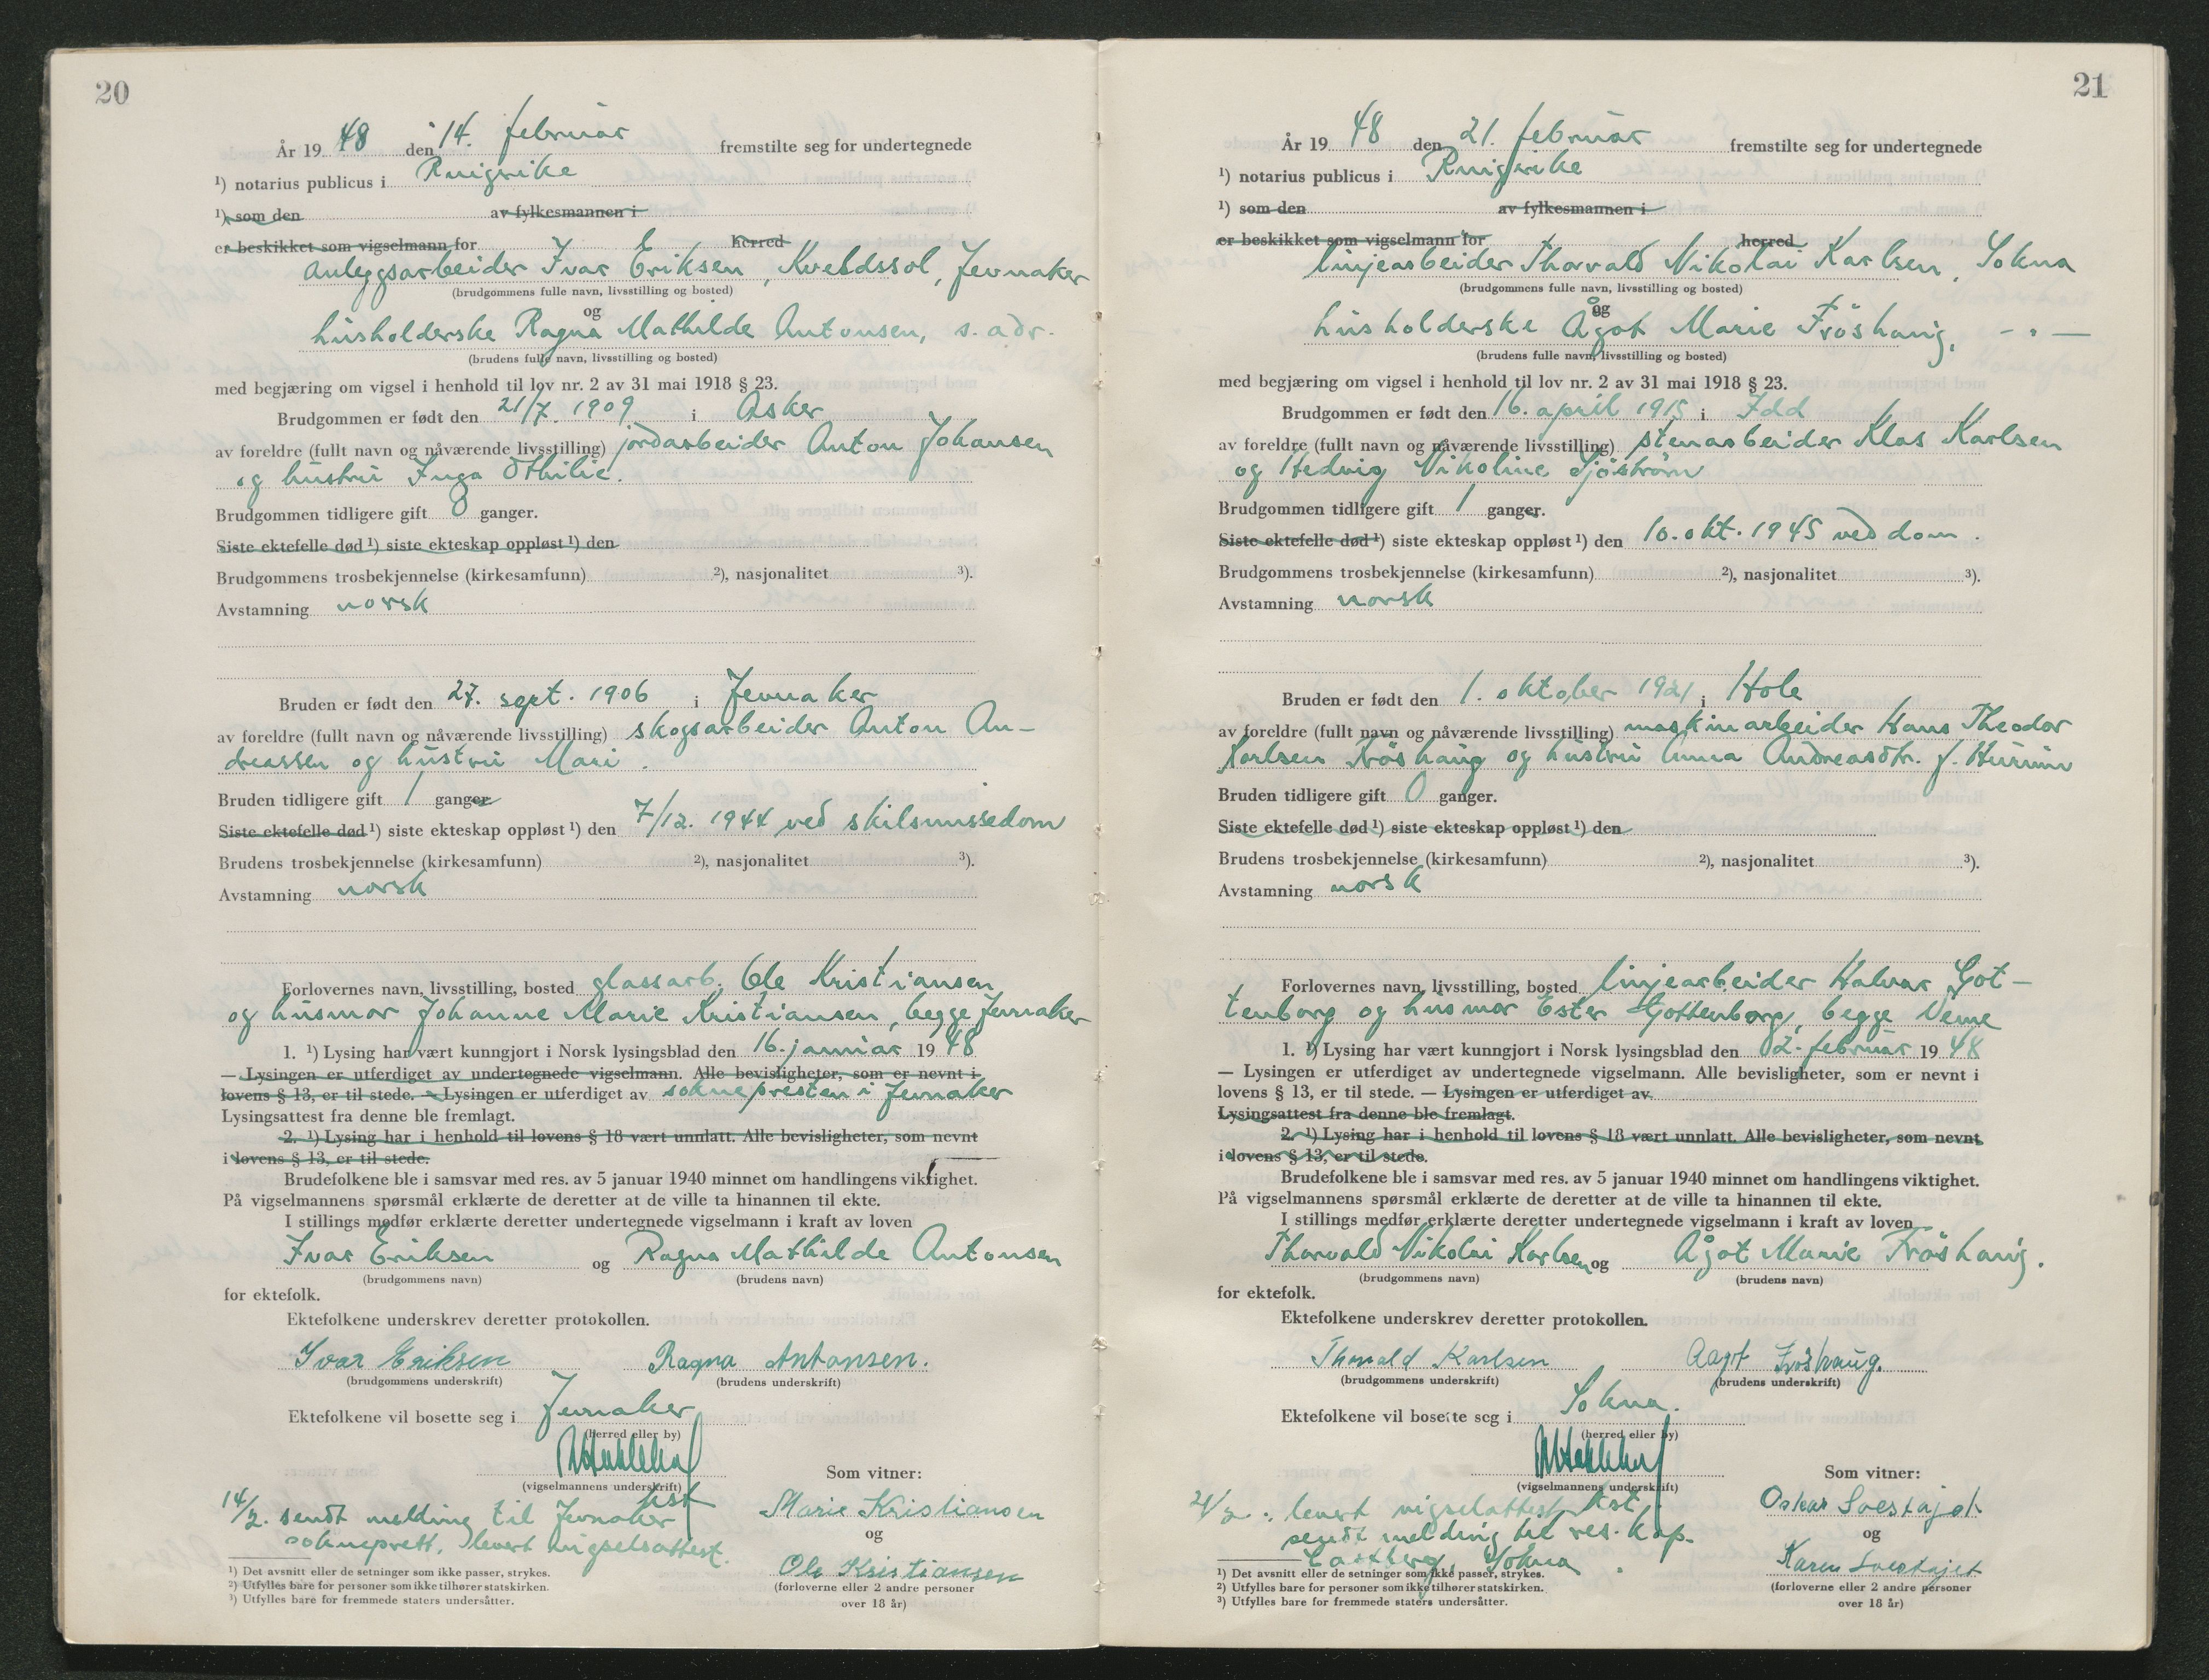 20
År 19 48 den 14. februar fremstilte seg for undertegnede
¹) notarius publicus i Ringerike
¹) som den av fylkesmannen i
er beskikket som vigselmann for herred
anleggsarbeider Ivar Eriksen, Kveldssol, Jevnaker
(brudgommens fulle navn, livsstilling og bosted)
og
husholderske Ragna Mathilde Antonsen, s. adr.
(brudens fulle navn, livsstilling og bosted)
med begjæring om vigsel i henhold til lov nr. 2 av 31 mai 1918 § 23.
Brudgommen er født den 21/7. 1909 i Asker
av foreldre (fullt navn og nåværende livsstilling) jordarbeider Anton Johansen
og hustru Inga Othilie.
Brudgommen tidligere gift 0 ganger.
Siste ektefelle død ¹) siste ekteskap oppløst ¹) den
Brudgommens trosbekjennelse (kirkesamfunn) ²), nasjonalitet ³).
Avstamning norsk
Bruden er født den 27. sept. 1906 i Jevnaker
av foreldre (fullt navn og nåværende livsstilling) skogsarbeider Anton An-
dreassen og hustru Mari.
Bruden tidligere gift 1 ganger
Siste ektefelle død ¹) siste ekteskap oppløst ¹) den 7/12. 1944 ved skilsmissedom
Brudens trosbekjennelse (kirkesamfunn) ²), nasjonalitet ³).
Avstamning norsk
Forlovernes navn, livsstilling, bosted glassarb. Ole Kristiansen
og husmor Johanne Marie Kristiansen, begge Jevnaker
1. ¹) Lysing har vært kunngjort i Norsk lysingsblad den 16. januar 19 48
— Lysingen er utferdiget av undertegnede vigselmann. Alle bevisligheter, som er nevnt i
lovens § 13, er til stede. — Lysingen er utferdiget av soknepresten i Jevnaker
Lysingsattest fra denne ble fremlagt.
2. ¹) Lysing har i henhold til lovens § 18 vært unnlatt. Alle bevisligheter, som nevnt
i lovens § 13, er til stede.
Brudefolkene ble i samsvar med res. av 5 januar 1940 minnet om handlingens viktighet.
På vigselmannens spørsmål erklærte de deretter at de ville ta hinannen til ekte.
I stillings medfør erklærte deretter undertegnede vigselmann i kraft av loven
Ivar Eriksen og Ragna Mathilde Antonsen
(brudgommens navn) (brudens navn)
for ektefolk.
Ektefolkene underskrev deretter protokollen.
Ivar Eriksen Ragna Antonsen.
(brudgommens underskrift) (brudens underskrift)
Ektefolkene vil bosette seg i Jevnaker
(herred eller by)
Som vitner:
(vigselmannens underskrift)
kst
14/2. sendt melding til Jevnaker
sokneprest, levert vigselsattest.
Marie Kristiansen
og
Ole Kristiansen
(forloverne eller 2 andre personer
over 18 år)
¹) Det avsnitt eller de setninger som ikke passer, strykes.
²) Utfylles bare for personer som ikke tilhører statskirken.
³) Utfylles bare for fremmede staters undersåtter.
21
År 19 48 den 21. februar fremstilte seg for undertegnede
¹) notarius publicus i Ringerike
¹) som den av fylkesmannen i
er beskikket som vigselmann for herred
linjearbeider Thorvald Nikolai Karlsen, Sokna
(brudgommens fulle navn, livsstilling og bosted)
og
husholderske Ågot Marie Fröshaug, - " -
(brudens fulle navn, livsstilling og bosted)
med begjæring om vigsel i henhold til lov nr. 2 av 31 mai 1918 § 23.
Brudgommen er født den 16. april 1915 i Idd
av foreldre (fullt navn og nåværende livsstilling) stenarbeider Klas Karlsen
og Hedvig Nikoline Sjöström
Brudgommen tidligere gift 1 ganger.
Siste ektefelle død ¹) siste ekteskap oppløst ¹) den 10. okt. 1945 ved dom.
Brudgommens trosbekjennelse (kirkesamfunn) ²), nasjonalitet ³).
Avstamning norsk
Bruden er født den 1. oktober 1921 i Hole
av foreldre (fullt navn og nåværende livsstilling) maskinarbeider Hans Theodor
Karlsen Fröshaug og hustru Anna Andreasdtr. f. Hurum
Bruden tidligere gift 0 ganger.
Siste ektefelle død ¹) siste ekteskap oppløst ¹) den
Brudens trosbekjennelse (kirkesamfunn) ²), nasjonalitet ³).
Avstamning norsk
Forlovernes navn, livsstilling, bosted linjearbeider Halvar Got-
tenborg og husmor Ester Gottenborg, begge Veme
1. ¹) Lysing har vært kunngjort i Norsk lysingsblad den 02. februar 19 48
— Lysingen er utferdiget av undertegnede vigselmann. Alle bevisligheter, som er nevnt i
lovens § 13, er til stede. — Lysingen er utferdiget av
Lysingsattest fra denne ble fremlagt.
2. ¹) Lysing har i henhold til lovens § 18 vært unnlatt. Alle bevisligheter, som nevnt
i lovens § 13, er til stede.
Brudefolkene ble i samsvar med res. av 5 januar 1940 minnet om handlingens viktighet.
På vigselmannens spørsmål erklærte de deretter at de ville ta hinannen til ekte.
I stillings medfør erklærte deretter undertegnede vigselmann i kraft av loven
Thorvald Nikolai Karlsen og Ågot Marie Fröshaug.
(brudgommens navn) (brudens navn)
for ektefolk.
Ektefolkene underskrev deretter protokollen.
Thorvald Karlsen Aagot Fröshaug.
(brudgommens underskrift) (brudens underskrift)
Ektefolkene vil bosette seg i Sokna.
(herred eller by)
Som vitner:
(vigselmannens underskrift)
kst.
21/2. levert vigselattest,
sendt melding til res. kap.
Sokna.
Oskar
og
Karen
(forloverne eller 2 andre personer
over 18 år)
¹) Det avsnitt eller de setninger som ikke passer, strykes.
²) Utfylles bare for personer som ikke tilhører statskirken.
³) Utfylles bare for fremmede staters undersåtter.